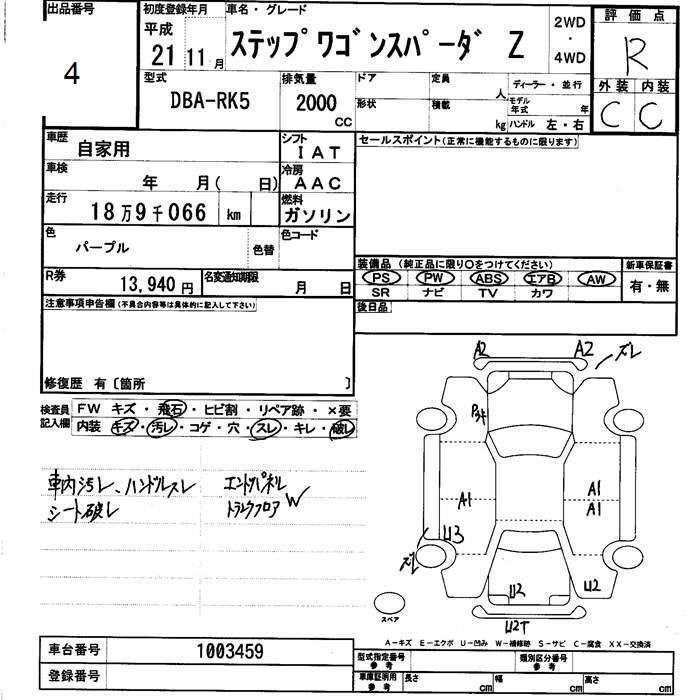 出品番号
4
初度登録年月
平成
21 11 月
車名・グレード
ステップワゴンスパーダ Z
2WD
・
4WD
評価点
R
外装 内装
C C
型式
DBA-RK5
排気量
2000
CC
ドア
定員
人
ディーラー・並行
形状
積載
kg
モデル年式
年
ハンドル 左・右
車歴
自家用
シフト
IAT
セールスポイント(正常に機能するものに限ります)
車検
年 月( 日)
冷房
AAC
走行
18万9千066 km
燃料
ガソリン
色
パープル
色替
色コード
R券
13,940 円
名変通知期限
月 日
装備品 (純正品に限り○をつけてください)
PS PW ABS エアB AW
SR ナビ TV カワ
新車保証書
有・無
注意事項申告欄(不具合内容等は具体的に記入して下さい)
後日品
修復歴 有〔箇所 〕
検査員記入欄
FW キズ・飛石・ヒビ割・リペア跡・×要
内装 キズ・汚レ・コゲ・穴・スレ・キレ・破レ
車内汚レ、ハンドルスレ
シート破レ
エンドパネル
トランクフロア W
A2 A2 ズレ
A1 A1
A1
U3
ズレ
U2 U2
U2T
スペア
A-キズ E-エクボ U-凹み W-補修跡 S-サビ C-腐食 XX-交換済
車台番号
1003459
登録番号
型式指定番号
参考
類別区分番号
参考
車庫証明用
参考
長さ cm 幅 cm 高さ cm